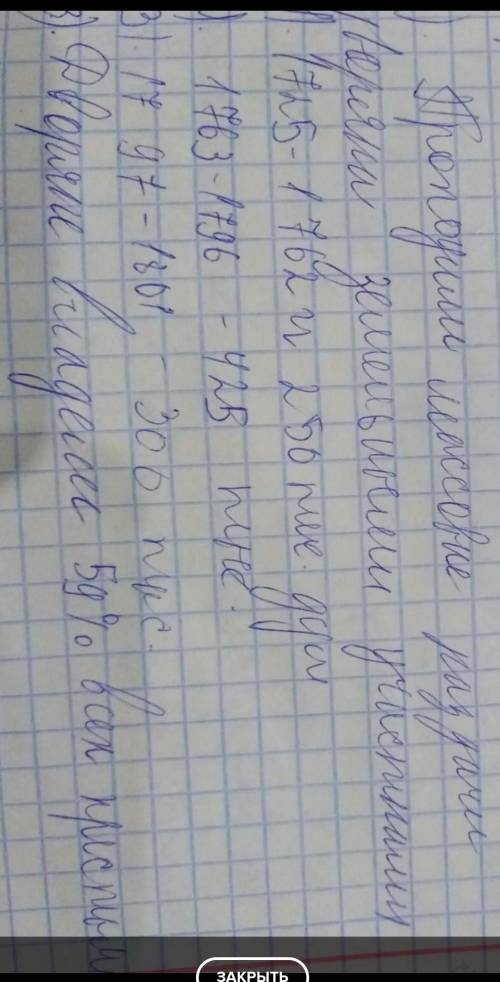 ). Проходили массовые раздачи
дворянам земельными участками
1725-1762 г. 250 тыс. душ
). 1763-1796 - 425 тыс.
3). 1797-1801 - 300 тыс.
3). Дворяне владели 59% всех крестьян
ЗАКРЫТЬ